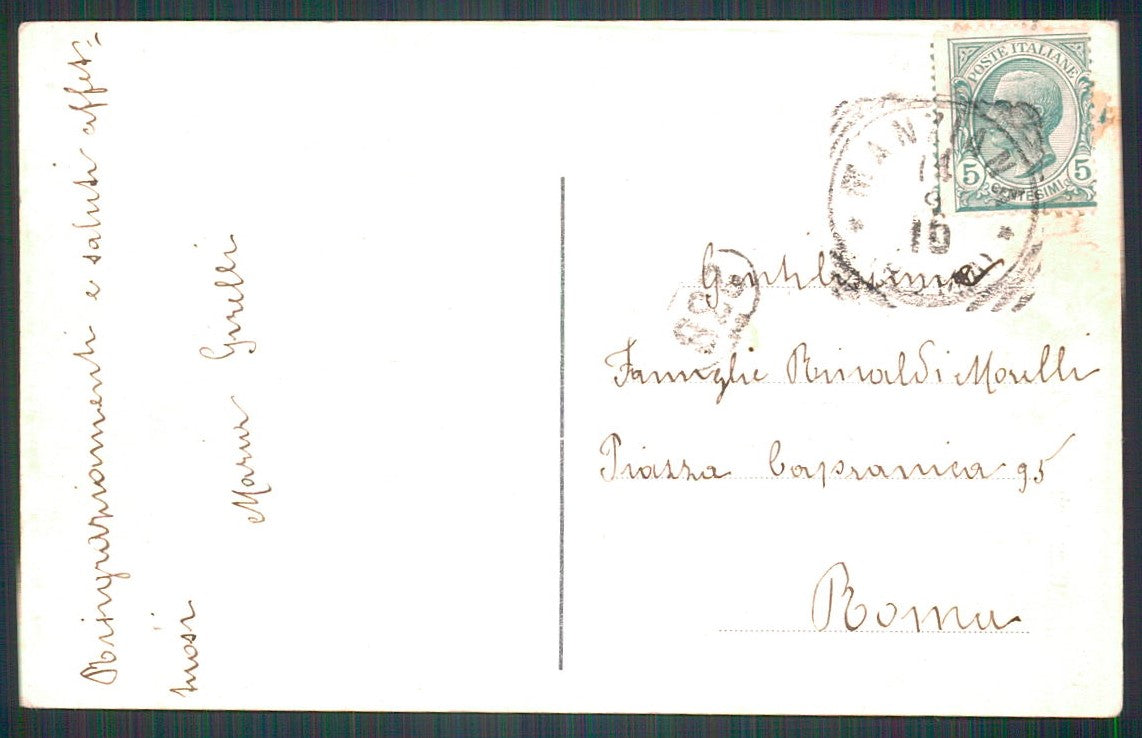 Ringraziamenti e saluti affet=
tuosi
Maria Girelli
POSTE ITALIANE
5 5
CENTESIMI
MANZIAN
14
10
Gentilissima
Famiglie Rinaldi Morelli
Piazza Capranica 95
Roma